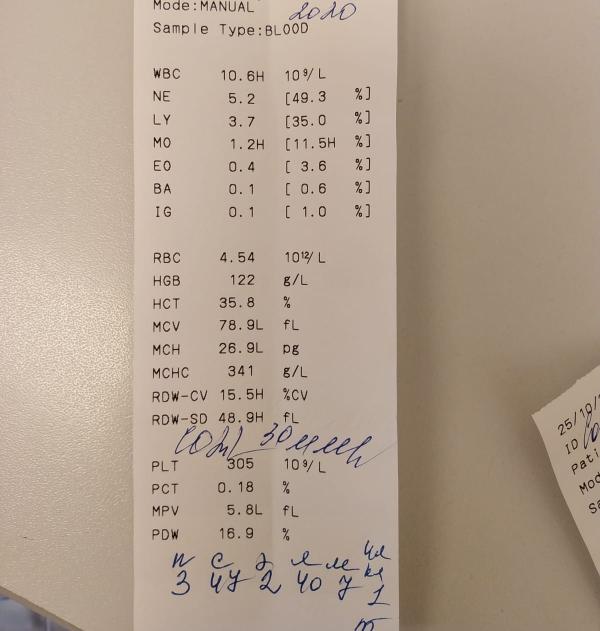 Mode:MANUAL 2020
Sample Type:BLOOD
WBC 10.6H 10⁹/L
NE 5.2 [49.3 %]
LY 3.7 [35.0 %]
MO 1.2H [11.5H %]
EO 0.4 [ 3.6 %]
BA 0.1 [ 0.6 %]
IG 0.1 [ 1.0 %]
RBC 4.54 10¹²/L
HGB 122 g/L
HCT 35.8 %
MCV 78.9L fL
MCH 26.9L pg
MCHC 341 g/L
RDW-CV 15.5H %CV
RDW-SD 48.9H fL
СОЭ 30 мм/ч
PLT 305 10⁹/L
PCT 0.18 %
MPV 5.8L fL
PDW 16.9 %
п с э л м
3 47 2 40 7 1
25/10/
ID
Pati
Mod
Sa